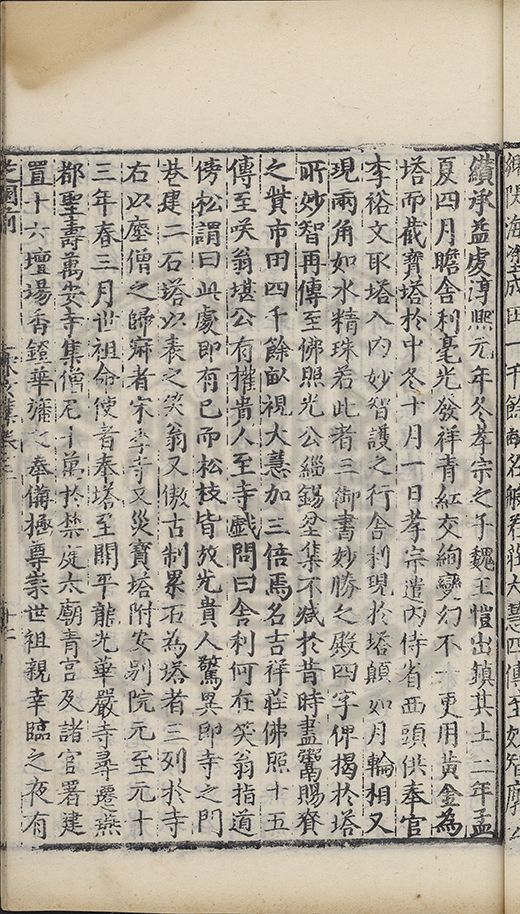 海塗成田一千餘畝名般若莊大慧四傳至妙智廓
纘承益虔淳熙元年冬孝宗之子魏王愷出鎮其土二年孟
夏四月瞻舍利毫光發祥青紅交絢變幻不一更用黃金為
塔而截寶塔於中冬十月一日孝宗遣內侍省西頭供奉官
李裕文取塔入內妙智護之行舍利現於塔顛如月輪相又
現兩角如水精珠若此者三御書妙勝之殿四字俾揭於塔
所妙智再傳至佛照光公緇錫坌集不減於昔時盡鬻賜賚
之貲市田四千餘畝視大慧加三倍焉名吉祥莊佛照十五
傳至咲翁堪公有權貴人至寺戲問曰舍利何在笑翁指道
傍松謂曰此處即有已而松枝皆放光貴人驚異即寺之門
巷建二石塔以表之笑翁又倣古制累石為塔者三列於寺
右以塵僧之歸寂者宋季寺又災寶塔附安別院元至元十
三年春三月世祖命使者奉塔至開平龍光華嚴寺尋遷燕
都聖壽萬安寺集僧尼十萬於禁庭太廟青宮及諸官署建
置十六壇場香鐙華旛之奉備極尊崇世祖親幸臨之夜有